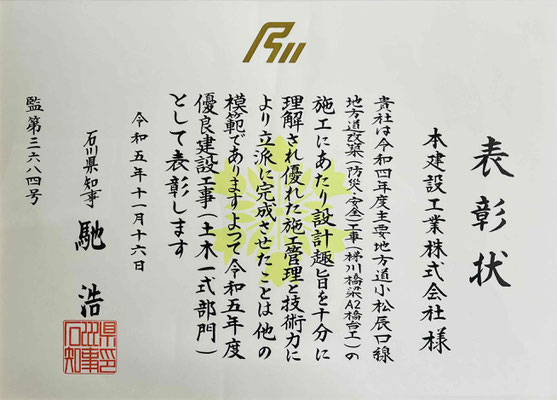 表彰状
本建設工業株式会社 様
貴社は令和四年度主要地方道小松辰口線
地方道改築(防災・安全)工事(梯川橋梁A2橋台工)の
施工にあたり設計趣旨を十分に
理解され優れた施工管理と技術力に
より立派に完成させたことは他の
模範でありますよつて令和五年度
優良建設工事(土木一式部門)
として表彰します
令和五年十一月十六日
石川県知事 馳浩
石川県知事印
監第三六八四号